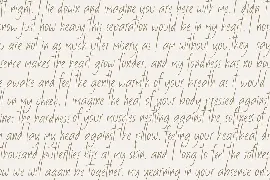 t night, I lie down and imagine you are here with me. I didn
know just how heavy this separation would be in my heart. I hop
s are not in as much utter misery as I am without you. They say
sence makes the heart grow fonder, and my fondness has no bou
e awake and feel the gentle warmth of your breath as it would
ll on my chest. I imagine the heat of your body pressed agains
ine: the hardness of your muscles nestling against the softness of
n and lay my head against the pillow, feeling your heartbeat dr
thousand butterflies kiss at my skin, and I long to feel the softnes
ow we will again be together, my yearning in your absence only